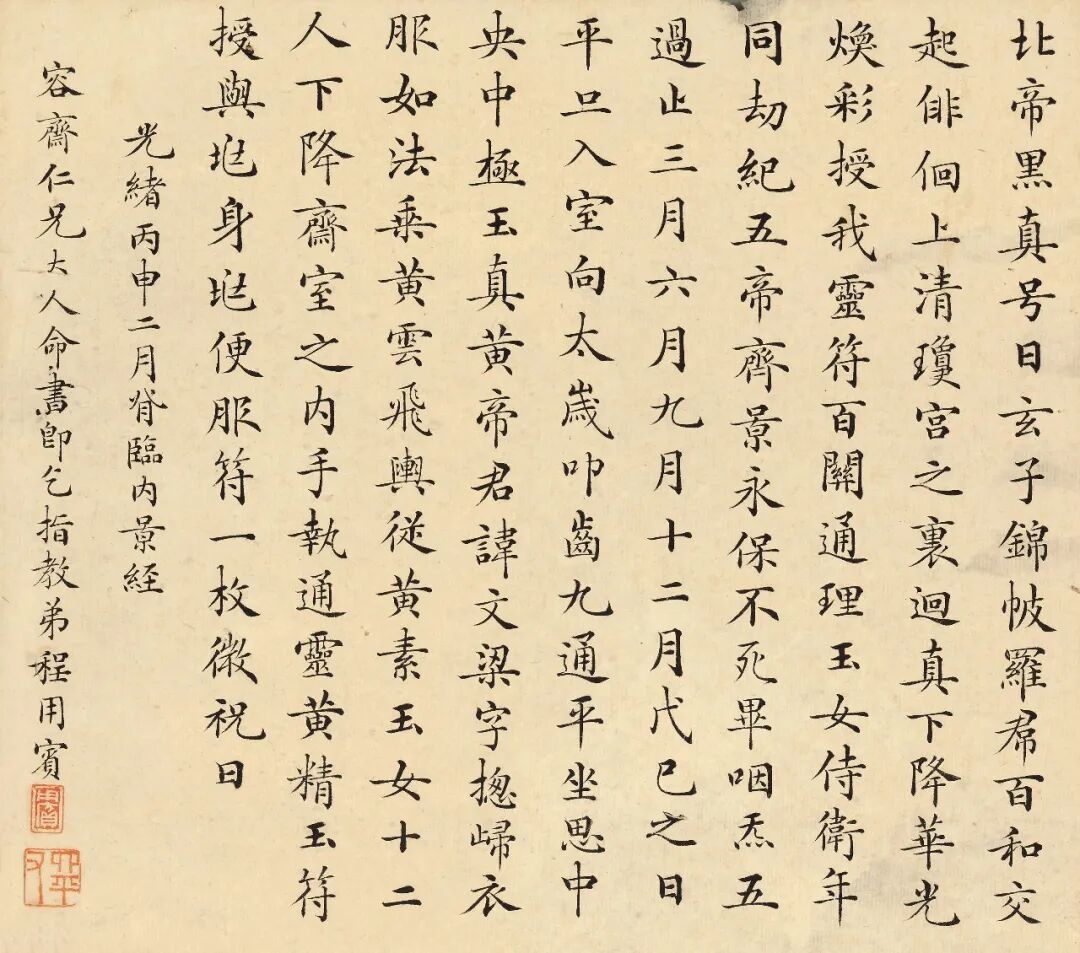 北帝黑真号曰玄子錦帔羅帬百和交
起俳佪上清瓊宫之裏迴真下降華光
煥彩授我靈符百關通理玉女侍衛年
同劫紀五帝齊景永保不死畢咽炁五
過止三月六月九月十二月戊巳之日
平旦入室向太歲叩齒九通平坐思中
央中極玉真黄帝君諱文梁字揔歸衣
服如法乗黄雲飛輿従黄素玉女十二
人下降齋室之内手執通靈黄精玉符
授與𠰺身𠰺便服符一枚微祝曰
光緒丙申二月脊臨内景経
容齋仁兄大人命書即乞指教弟程用賓